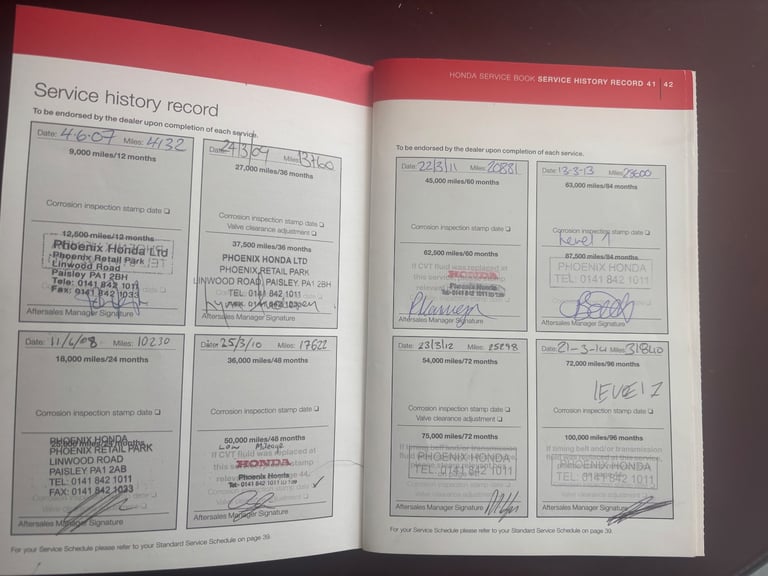 Service history record
To be endorsed by the dealer upon completion of each service.
Date: 4-6-07 Miles: 4132
9,000 miles/12 months
Corrosion inspection stamp date ❏
12,500 miles/12 months
Phoenix Honda Ltd
Phoenix Retail Park
Linwood Road
Paisley PA1 2BH
Tele: 0141 842 1011
Fax: 0141 842 1033
Aftersales Manager Signature
Date: 24/3/09 Miles: 13760
27,000 miles/36 months
Corrosion inspection stamp date ❏
Valve clearance adjustment ❏
37,500 miles/36 months
PHOENIX HONDA LTD
PHOENIX RETAIL PARK
LINWOOD ROAD, PAISLEY, PA1 2BH
TEL: 0141 842 1011
Aftersales Manager Signature
Date: 11/6/08 Miles: 10230
18,000 miles/24 months
Corrosion inspection stamp date ❏
PHOENIX HONDA
PHOENIX RETAIL PARK
LINWOOD ROAD
PAISLEY PA1 2AB
TEL: 0141 842 1011
FAX: 0141 842 1033
Aftersales Manager Signature
Date: 25/3/10 Miles: 17622
36,000 miles/48 months
Corrosion inspection stamp date ❏
50,000 miles/48 months
Low Mileage
If CVT fluid was replaced at
HONDA
Phoenix Honda
Tel- 0141 842 1011
Aftersales Manager Signature
For your Service Schedule please refer to your Standard Service Schedule on page 39.
HONDA SERVICE BOOK SERVICE HISTORY RECORD 41 | 42
To be endorsed by the dealer upon completion of each service.
Date: 22/3/11 Miles: 20881
45,000 miles/60 months
Corrosion inspection stamp date ❏
62,500 miles/60 months
If CVT fluid was replaced at
HONDA
Phoenix Honda
Tel- 0141 842 1011
Aftersales Manager Signature
Date: 13-3-13 Miles: 28600
63,000 miles/84 months
Corrosion inspection stamp date ❏
Level 1
87,500 miles/84 months
PHOENIX HONDA
TEL: 0141 842 1011
Aftersales Manager Signature
Date: 23/3/12 Miles: 25298
54,000 miles/72 months
Corrosion inspection stamp date ❏
Valve clearance adjustment ❏
75,000 miles/72 months
If timing belt and/or transmission
PHOENIX HONDA
TEL: 0141 842 1011
Aftersales Manager Signature
Date: 21-3-14 Miles: 31840
72,000 miles/96 months
LEVEL 2
Corrosion inspection stamp date ❏
100,000 miles/96 months
If timing belt and/or transmission
PHOENIX HONDA
TEL: 0141 842 1011
Aftersales Manager Signature
For your Service Schedule please refer to your Standard Service Schedule on page 39.